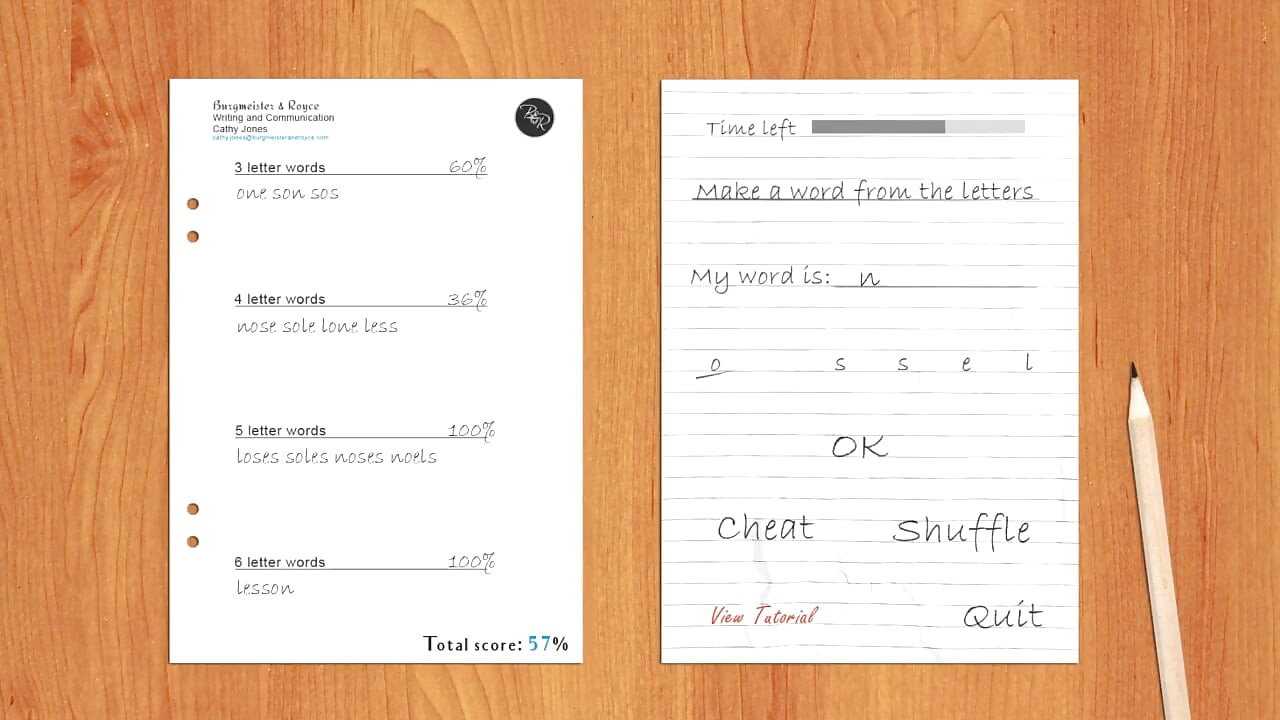 Burgmeister & Royce
Writing and Communication
Cathy Jones
cathy.jones@burgmeisterandroyce.com
B&R
3 letter words 60%
one son sos
4 letter words 36%
nose sole lone less
5 letter words 100%
loses soles noses noels
6 letter words 100%
lesson
Total score: 57%
Time left
Make a word from the letters
My word is: n
o s s e l
OK
Cheat Shuffle
View Tutorial Quit